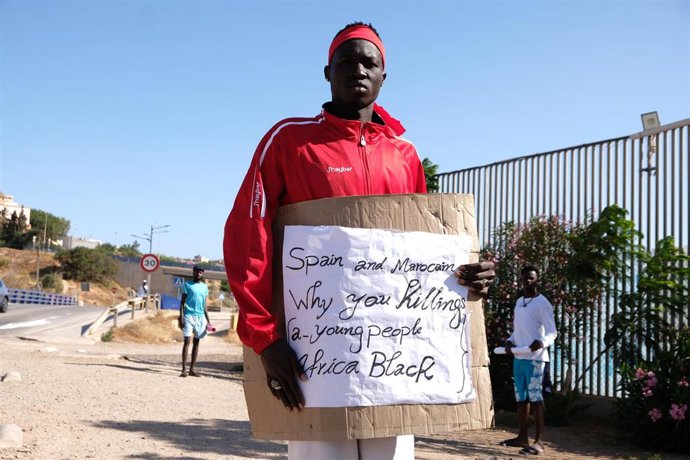 30
Jhayber
Jhayber
Spain and Marocain
Why you killings
(a-young people
Africa Black }